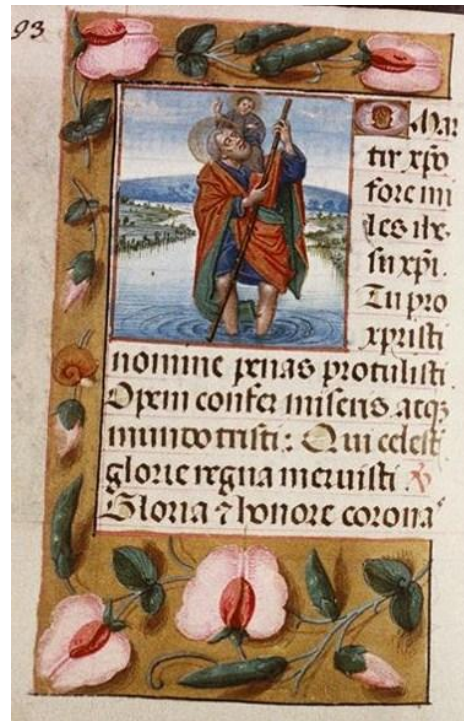 93
O Mar
tir xp̄o
fore mi
les ihe
su xp̄i.
Tu pro
xpristi
nomine penas protulisti.
Opem confer miseris atqꝫ
mundo tristi: Qui celesti
glorie regna meruisti ℣
Gloria ⁊ honore corona